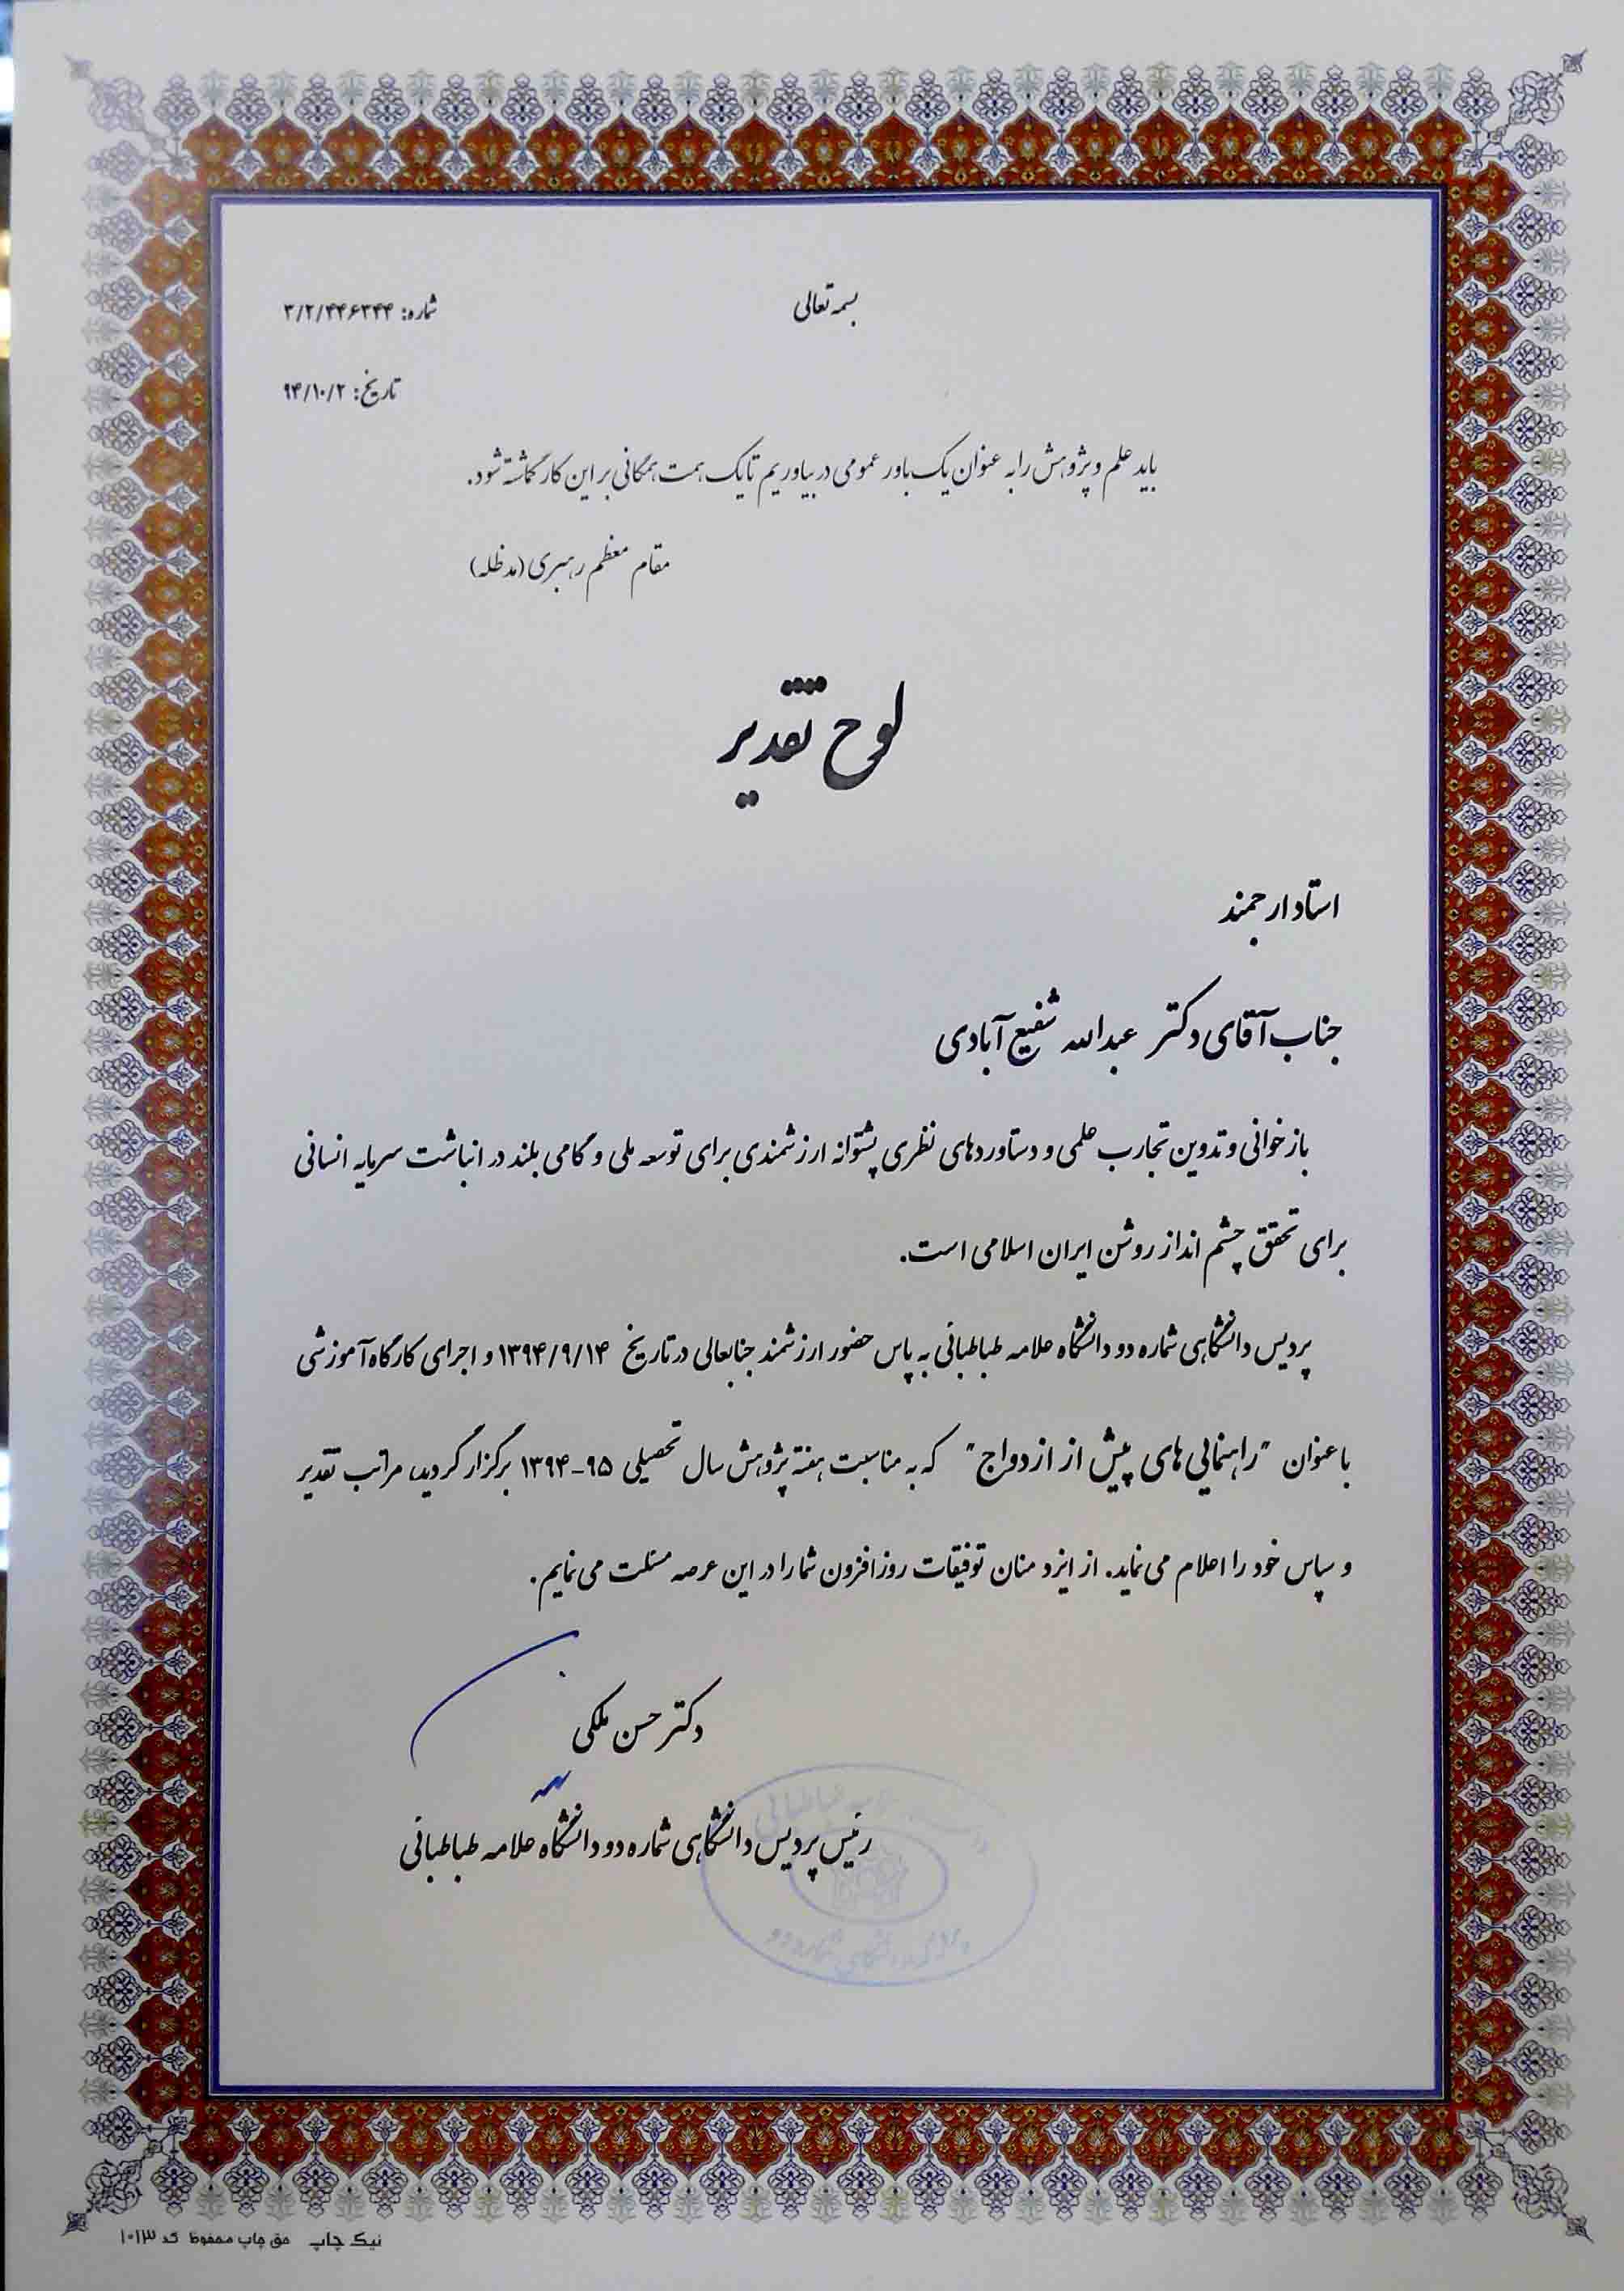 بسمه تعالی
شماره: ۳/۲/۴۴۶۳۴۴
تاریخ: ۹۴/۱۰/۲
باید علم و پژوهش را به عنوان یک باور عمومی در بیاوریم تا یک همت همگانی بر این کار گماشته شود.
مقام معظم رهبری (مدظله)
لوح تقدیر
استاد ارجمند
جناب آقای دکتر عبدالله شفیع آبادی
بازخوانی و تدوین تجارب علمی و دستاوردهای نظری پشتوانه ارزشمندی برای توسعه ملی و گامی بلند در انباشت سرمایه انسانی
برای تحقق چشم انداز روشن ایران اسلامی است.
پردیس دانشگاهی شماره دو دانشگاه علامه طباطبائی به پاس حضور ارزشمند جنابعالی در تاریخ ۱۳۹۴/۹/۱۴ و اجرای کارگاه آموزشی
با عنوان "راهنمایی های پیش از ازدواج" که به مناسبت هفته پژوهش سال تحصیلی ۹۵-۱۳۹۴ برگزار گردید، مراتب تقدیر
و سپاس خود را اعلام می نماید. از ایزد منان توفیقات روزافزون شما را در این عرصه مسئلت می نمایم.
دکتر حسن ملکی
رئیس پردیس دانشگاهی شماره دو دانشگاه علامه طباطبائی
علامه طباطبائی
پردیس دانشگاهی شماره دو
نیک چاپ حق چاپ محفوظ کد ۱۰۱۳